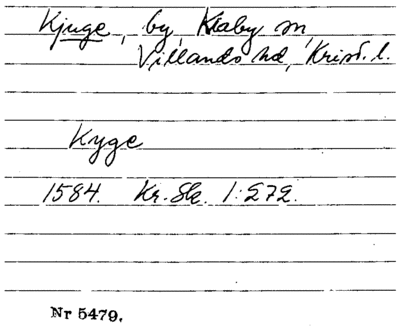 Kjuge, by, Kiaby sn,
Villands hd, Krist. l.
Kyge
1584. Kr. Sk. 1:272.
Nr 5479.